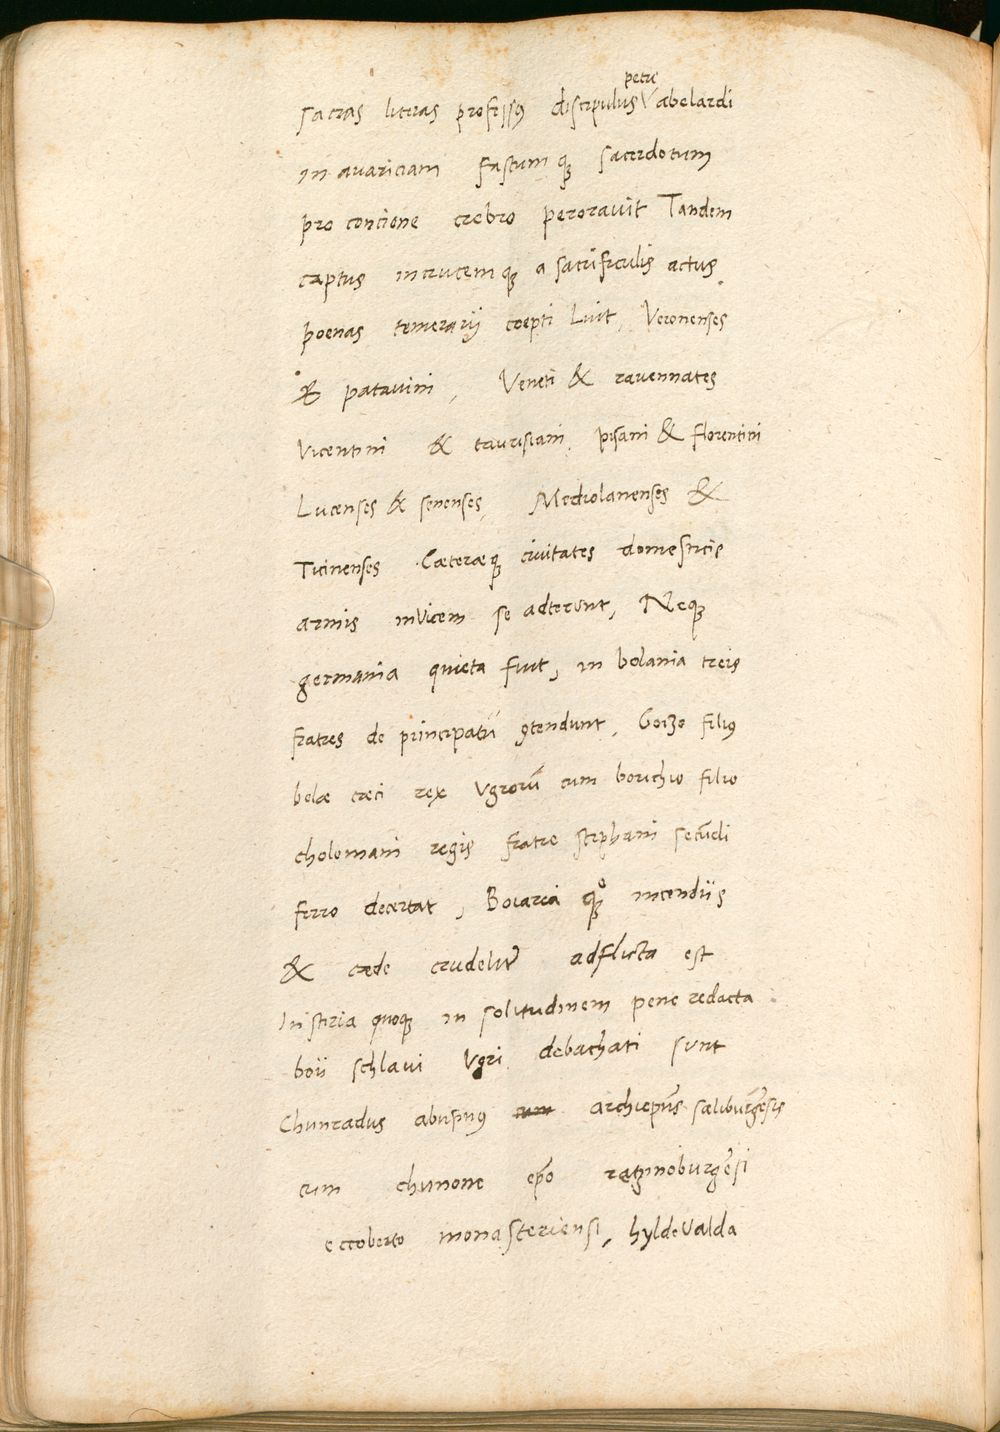 petri
sacras literas professus discipulus abelardi
in avariciam fastumque sacerdotum
pro concione crebro peroravit Tandem
captus in crucemque a sacrificulis actus.
poenas temerarij coepti Luit, Veronenses
& patavini, Veneti & ravennates
Vicentini & taurisiani, pisani & florentini
Lucenses & senenses, Mediolanenses &
Ticinenses Cæteræque civitates domesticis
armis invicem se adterunt, Neque
germania quieta fuit, in bolania treis
fratres de principatu contendunt, Goizo filius
belæ cæci rex Vgrorū cum borichio filio
cholomani regis fratre stephani secūdi
ferro decertat, Boiaria quoque incendiis
& cæde crudeliter adflicta est
In stiria quoque in solitudinem pene redacta
boii schlavi Vgri debachati sunt
Chunradus abusinus archiepūs saliburgēsis
cum chunone epō ræginoburgēsi
eccoberto monasteriensi, hyldeValda